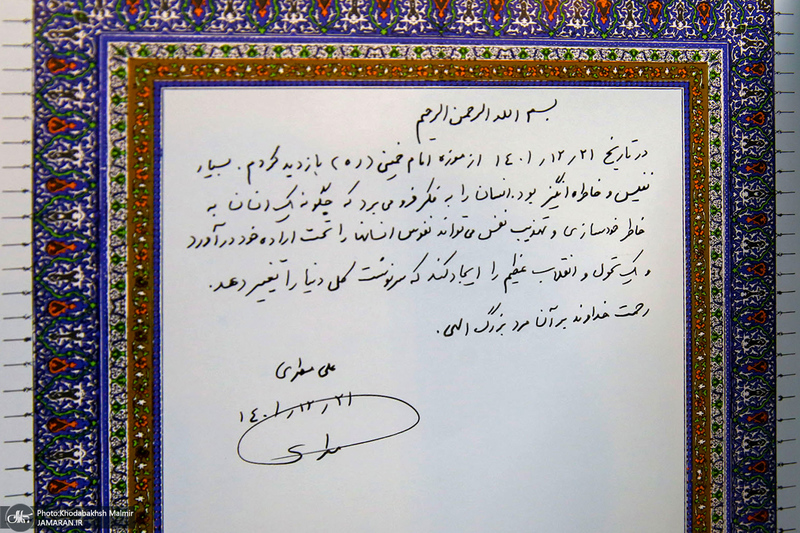 بسم الله الرحمن الرحیم
در تاریخ ۱۴۰۱/۱۲/۲۱ از موزه امام خمینی (ره) بازدید کردم. بسیار
نفیس و خاطره انگیز بود. انسان را به تفکر فرو می‌برد که چگونه یک انسان به
خاطر خودسازی و تهذیب نفس می‌تواند نفوس انسانها را تحت اراده خود درآورد
و یک تحول و انقلاب عظیم را ایجاد کند که سرنوشت کل دنیا را تغییر دهد.
رحمت خداوند بر آن مرد بزرگ الهی.
علی
۱۴۰۱/۱۲/۲۱
Photo:Khodabakhsh Malmir
JAMARAN.IR